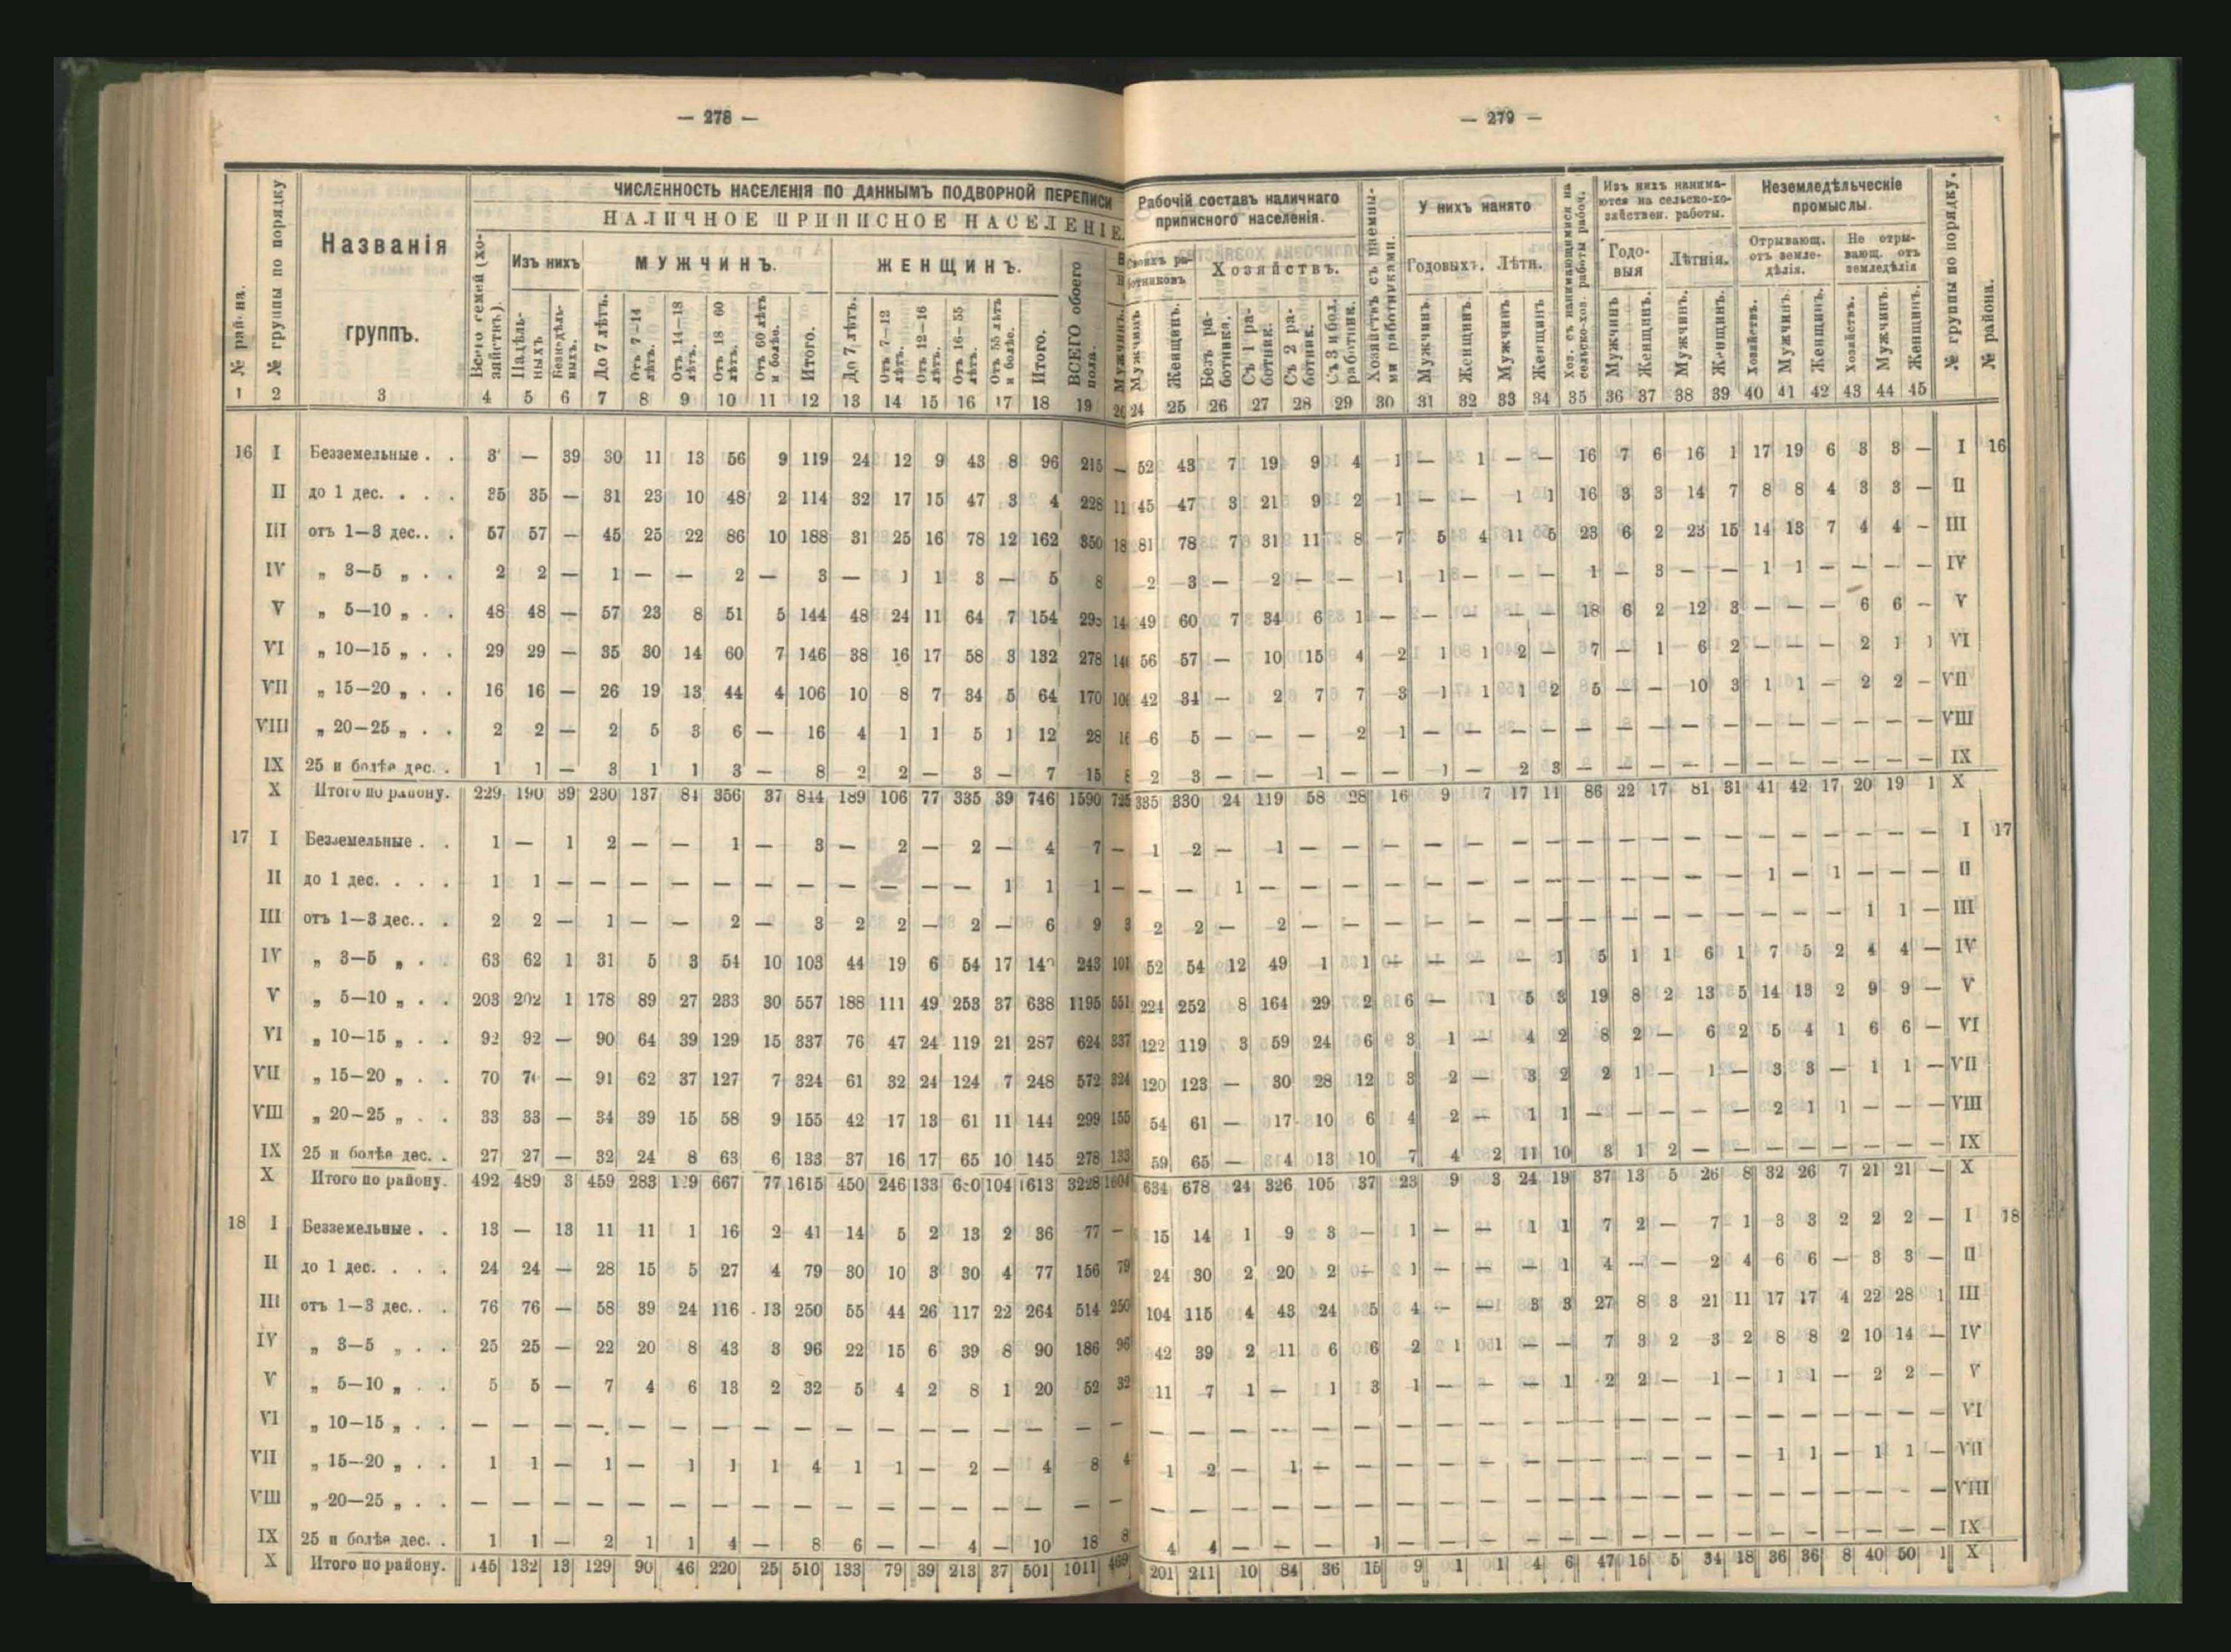 — 278 —
ЧИСЛЕННОСТЬ НАСЕЛЕНІЯ ПО ДАННЫМЪ ПОДВОРНОЙ ПЕРЕПИСИ
НАЛИЧНОЕ ПРИПИСНОЕ НАСЕЛЕНІЕ.
№ района. № группы по порядку Названія группъ. Всего семей (хозяйствъ). Изъ нихъ МУЖЧИНЪ. ЖЕНЩИНЪ. ВСЕГО обоего пола.
Надѣльныхъ Безнадѣльныхъ. До 7 лѣтъ. Отъ 7—14 лѣтъ. Отъ 14—18 лѣтъ. Отъ 18 60 лѣтъ. Отъ 60 лѣтъ и болѣе. Итого. До 7 лѣтъ. Отъ 7—12 лѣтъ. Отъ 12—16 лѣтъ. Отъ 16—55 лѣтъ. Отъ 55 лѣтъ и болѣе. Итого. Мужчинъ.
1 2 3 4 5 6 7 8 9 10 11 12 13 14 15 16 17 18 19
16 I Безземельные . . — 39 30 11 13 56 9 119 24 12 9 43 8 96 215 —
II до 1 дес. . . . 35 35 — 31 23 10 48 2 114 32 17 15 47 3 228
III отъ 1—3 дес. . . 57 57 — 45 25 22 86 10 188 31 25 16 78 12 162 350
IV „ 3—5 „ . . 2 2 — 1 — — 2 — 3 — 1 1 3 — 5 8
V „ 5—10 „ . . 48 48 — 57 23 8 51 5 144 48 24 11 64 7 154
VI „ 10—15 „ . . 29 29 — 35 30 14 60 7 146 38 16 17 58 3 132 278
VII „ 15—20 „ . . 16 16 — 26 19 13 44 4 106 10 8 7 34 5 64 170
VIII „ 20—25 „ . . 2 2 — 2 5 3 6 — 16 4 1 1 5 1 12 28
IX 25 и болѣе дес. . 1 1 — 3 1 1 3 — 8 2 2 — 3 — 7 15 8
X Итого по району. 229 190 39 230 137 84 356 37 844 189 106 77 335 39 746 1590 725
17 I Безземельные . . 1 — 1 2 — — 1 — 3 — 2 — 2 — 4 7 —
II до 1 дес. . . . 1 1 — — — — — — — — — — — 1 1 1 —
III отъ 1—3 дес. . . 2 2 — 1 — — 2 — 3 2 2 — 2 — 6 9 3
IV „ 3—5 „ . . 63 62 1 31 5 3 54 10 103 44 19 6 54 17 243 101
V „ 5—10 „ . . 203 202 1 178 89 27 233 30 557 188 111 49 253 37 638 1195 551
VI „ 10—15 „ . . 92 92 — 90 64 39 129 15 337 76 47 24 119 21 287 624 337
VII „ 15—20 „ . . 70 — 91 62 37 127 7 324 61 32 24 124 7 248 572 324
VIII „ 20—25 „ . . 33 33 — 34 39 15 58 9 155 42 17 13 61 11 144 299 155
IX 25 и болѣе дес. . 27 27 — 32 24 8 63 6 133 37 16 17 65 10 145 278 133
X Итого по району. 492 489 3 459 283 667 77 1615 450 246 133 104 1613 3228 1604
18 I Безземельные . . 13 — 13 11 11 1 16 2 41 14 5 2 13 2 36 77 —
II до 1 дес. . . . 24 24 — 28 15 5 27 4 79 30 10 3 30 4 77 156 79
III отъ 1—3 дес. . . 76 76 — 58 39 24 116 13 250 55 44 26 117 22 264 514 250
IV „ 3—5 „ . . 25 25 — 22 20 8 43 3 96 22 15 6 39 8 90 186 96
V „ 5—10 „ . . 5 5 — 7 4 6 13 2 32 5 4 2 8 1 20 52 32
VI „ 10—15 „ . . — — — — — — — — — — — — — — — — —
VII „ 15—20 „ . . 1 1 — 1 — 1 1 1 4 1 1 — 2 — 4 8 4
VIII „ 20—25 „ . . — — — — — — — — — — — — — — — — —
IX 25 и болѣе дес. . 1 1 — 2 1 1 4 — 8 6 — — 4 — 10 18 8
X Итого по району. 145 132 13 129 90 46 220 25 510 133 79 39 213 37 501 1011 469
— 279 —
Рабочій составъ наличнаго приписного населенія. Хозяйствъ съ наемными работниками. У нихъ нанято Хоз. съ нанимающимися на сельско-хоз. работы рабоч. Изъ нихъ нанимаются на сельско-хозяйствен. работы. Неземледѣльческіе промыслы. № группы по порядку. № района.
Своихъ работниковъ Хозяйствъ. Годовыхъ. Лѣтн. Годовыя Лѣтнія. Отрывающ. отъ земледѣлія. Не отрывающ. отъ земледѣлія
Мужчинъ Женщинъ. Безъ работника. Съ 1 работник. Съ 2 работник. Съ 3 и бол. работник. Мужчинъ Женщинъ. Мужчинъ Женщинъ Мужчинъ Женщинъ. Мужчинъ. Женщинъ. Хозяйствъ. Мужчинъ. Женщинъ. Хозяйствъ. Мужчинъ. Женщинъ.
24 25 26 27 28 29 30 31 32 33 34 35 36 37 38 39 40 41 42 43 44 45
52 43 7 19 9 4 1 — 1 — — 16 7 6 16 1 17 19 6 3 3 — I 16
45 47 3 21 9 2 1 — — 1 1 16 3 3 14 7 8 8 4 3 3 — II
81 78 7 31 11 8 7 5 4 11 5 23 6 2 23 15 14 13 7 4 4 — III
2 3 — 2 — — 1 1 — — — 1 — 3 — — 1 1 — — — — IV
49 60 7 34 6 1 — — — — — 18 6 2 12 3 — — — 6 6 — V
56 57 — 10 15 4 2 1 1 2 — 7 — 1 6 2 — — — 2 1 1 VI
42 34 — 2 7 7 3 1 1 1 2 5 — — 10 3 1 1 — 2 2 — VII
6 5 — — — 2 1 — — — — — — — — — — — — — — — VIII
2 3 — — 1 — — 1 — 2 3 — — — — — — — — — — — IX
335 330 24 119 58 28 16 9 7 17 11 86 22 17 81 31 41 42 17 20 19 1 X
1 2 — 1 — — — — — — — — — — — — — — — — — — I 17
— — 1 — — — — — — — — — — — — — 1 — 1 — — — II
2 2 — 2 — — — — — — — — — — — — — — — 1 1 — III
52 54 12 49 1 1 — — — — 1 5 1 1 6 1 7 5 2 4 4 — IV
224 252 8 164 29 2 6 — 1 5 3 19 8 2 13 5 14 13 2 9 9 — V
122 119 3 59 24 6 3 1 — 4 2 8 2 — 6 2 5 4 1 6 6 — VI
120 123 — 30 28 12 3 2 — 3 2 2 1 — 1 — 3 3 — 1 1 — VII
54 61 — 17 10 6 4 2 — 1 1 — — — — — 2 1 1 — — — VIII
59 65 — 4 13 10 7 4 2 11 10 3 1 2 — — — — — — — — IX
634 678 24 326 105 37 23 9 3 24 19 37 13 5 26 8 32 26 7 21 21 — X
15 14 1 9 3 — 1 — — 1 1 7 2 — 7 1 3 3 2 2 2 — I 18
24 30 2 20 2 — 1 — — — 1 4 — — 2 4 6 6 — 3 3 — II
104 115 4 43 24 5 4 — — 3 3 27 8 3 21 11 17 17 4 22 28 1 III
42 39 2 11 6 6 2 1 1 — — 7 3 2 3 2 8 8 2 10 14 — IV
11 7 1 — 1 3 1 — — — 1 2 2 — 1 — 1 1 — 2 2 — V
— — — — — — — — — — — — — — — — — — — — — — VI
1 2 — 1 — — — — — — — — — — — — 1 1 — 1 1 — VII
— — — — — — — — — — — — — — — — — — — — — — VIII
4 4 — — — 1 — — — — — — — — — — — — — — — — IX
201 211 10 84 36 15 9 1 1 4 6 47 15 5 34 18 36 36 8 40 50 1 X